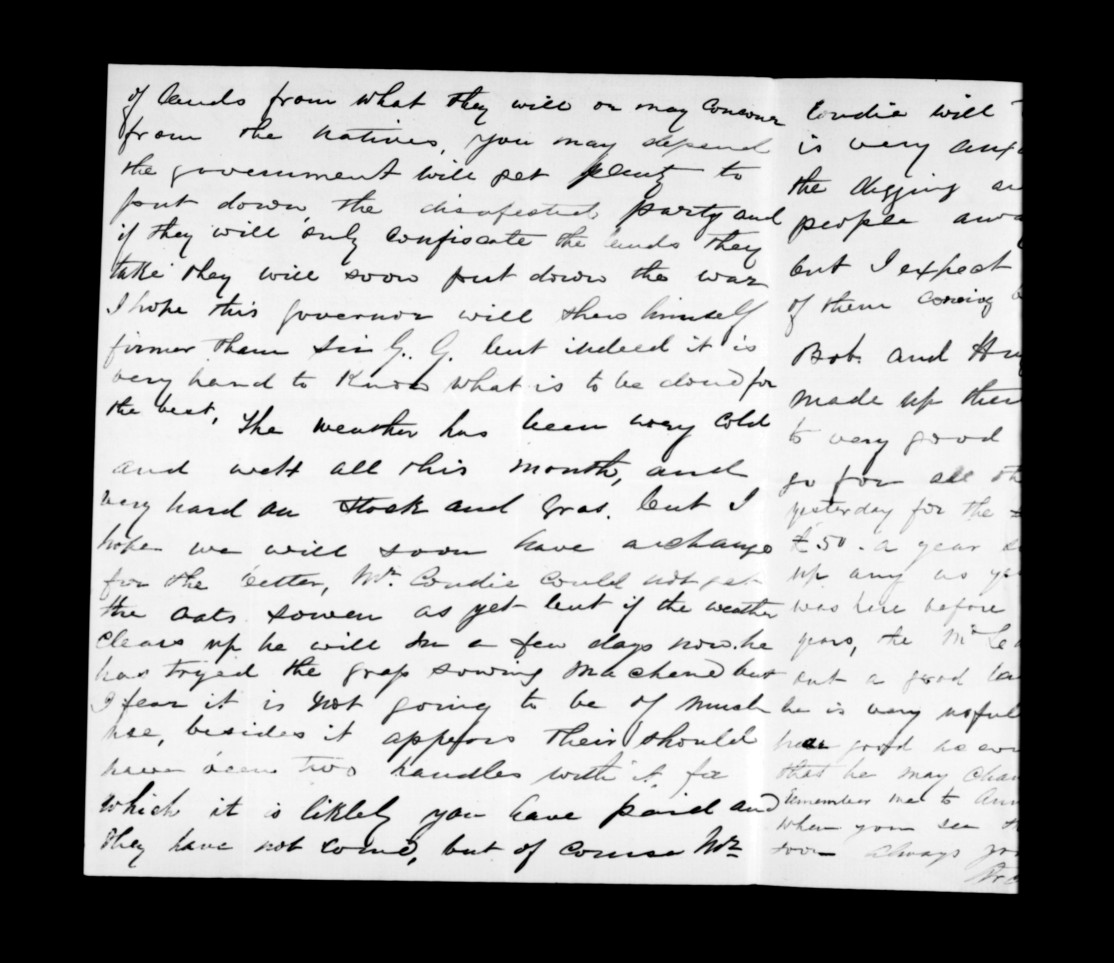 of lands from what they will or may conquer
from the natives, you may depend
the government will get plenty to
put down the disafected party and
if they will only confiscate the lands they
take they will soon put down the war
I hope this governor will shew himself
firmer than Sir G. G. but indeed it is
very hard to know what is to be done for
the best, The weather has been very cold
and wett all this month, and
very hard on stock and gras. but I
hope we will soon have a change
for the better, Mr Condie could not get
the oats sowen as yet but if the weather
clears up he will in a few days now. he
has tryed the grass sowing machene but
I fear it is not going to be of much
use, besides it appears their should
have been two handles with it for
which it is likley you have paid and
they have not come, but of course Mr
Condie will
is very
the digging
people
but I expect
of them coming
Bob. and
made up
to very good
go for all
yesterday for the
£50. a year
up any as
was here before
years, the Mr
but a good
he is very usful
good as
that he may
Remember me to
when you see
soon always